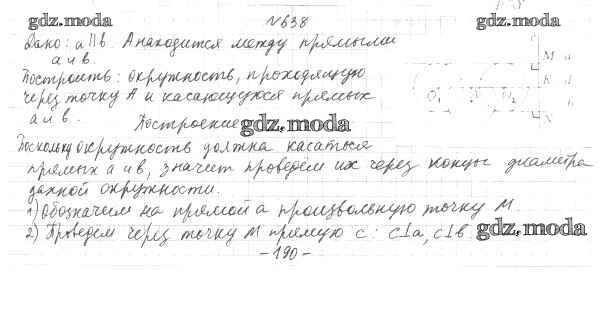 №638
gdz.moda
gdz.moda
Дано: a||в. А находится между прямыми
а и в.
Построить: окружность, проходящую
через точку А и касающуюся прямых
а и в.
Построение gdz.moda
Поскольку окружность должна касаться
прямых а и в, значит проведём их через концы диаметра
данной окружности.
1) Обозначим на прямой а произвольную точку М.
2) Проведём через точку М прямую с: с⊥а, с⊥в. gdz.moda
-190-
c
M a
K d
O₁ O₂
N b